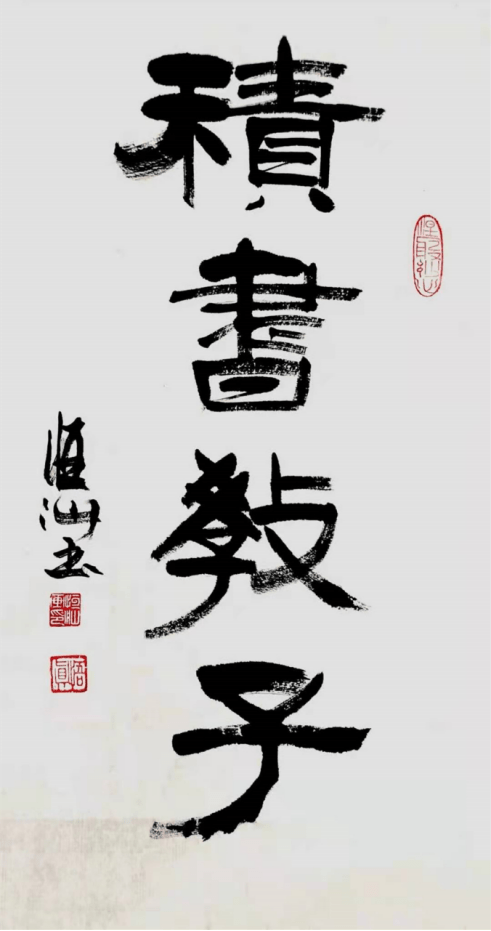 積書教子
恒山书